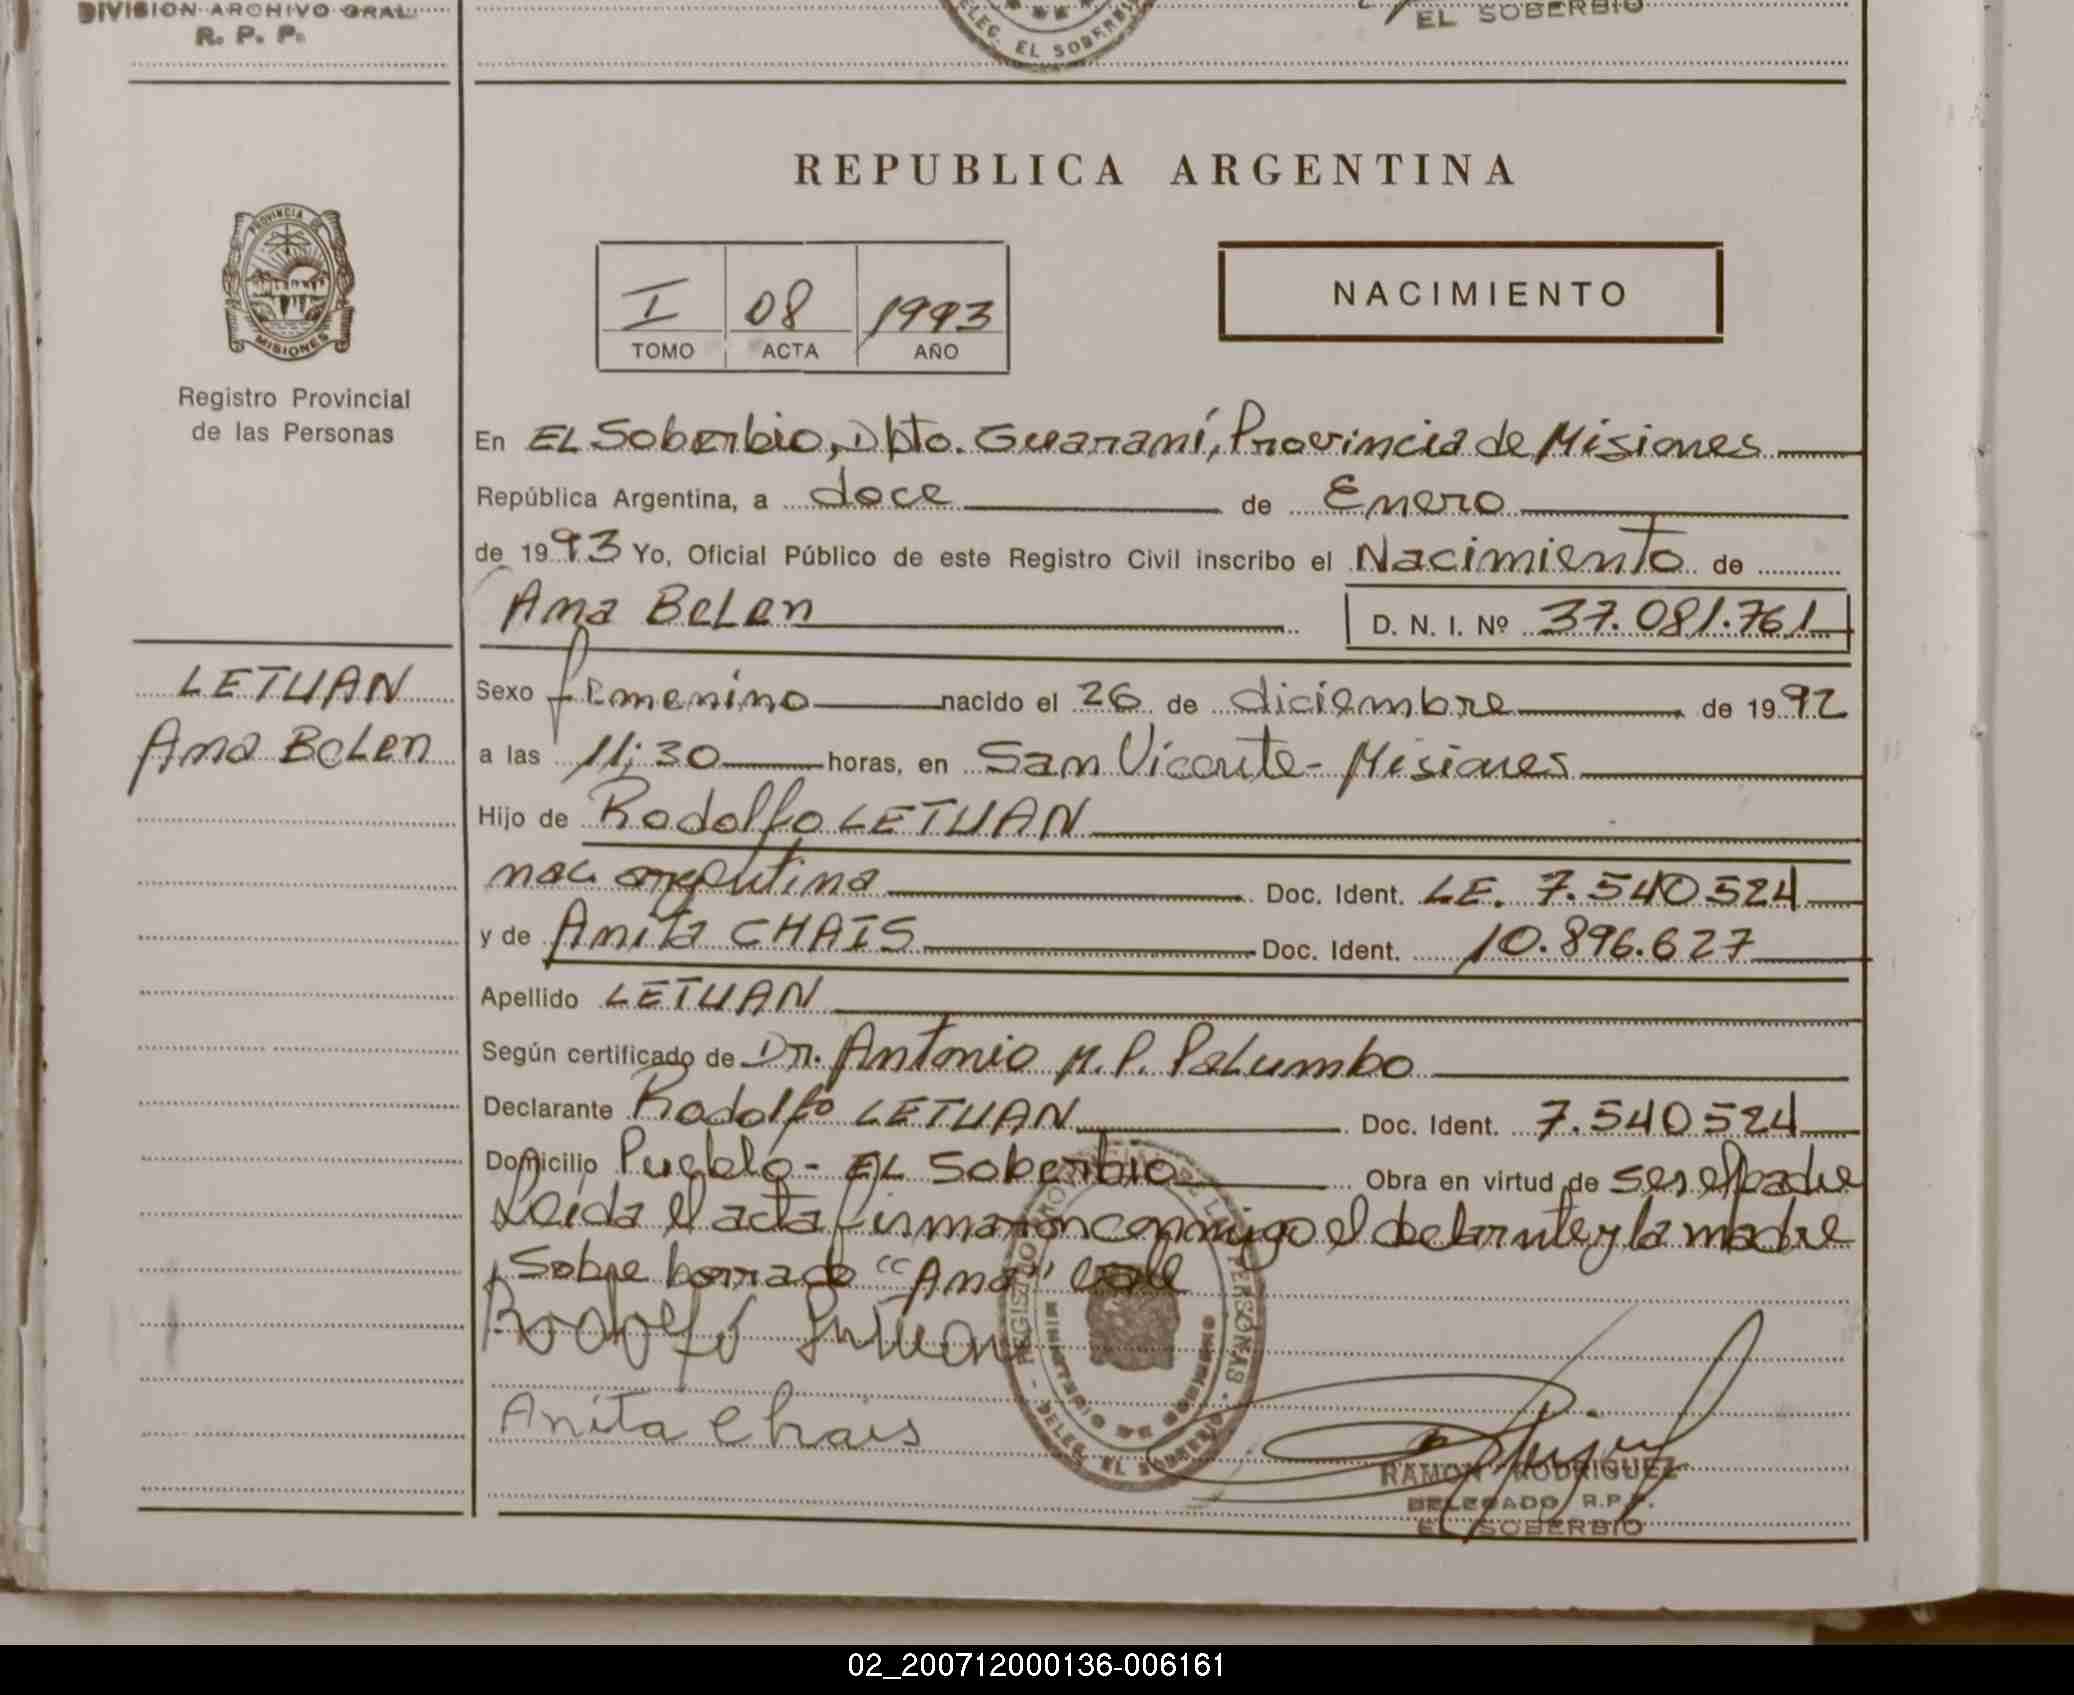 DIVISION ARCHIVO GRAL.
R. P. P.
DELEG. EL SOBERBIO
EL SOBERBIO
PROVINCIA DE
MISIONES
Registro Provincial
de las Personas
REPUBLICA ARGENTINA
I 08 1993
TOMO ACTA AÑO
NACIMIENTO
En EL Soberbio, Dpto. Guaraní, Provincia de Misiones
República Argentina, a doce de Enero
de 1993 Yo, Oficial Público de este Registro Civil inscribo el Nacimiento de
Ana BeLen D. N. I. Nº 37.081.761
LETUAN
Ana BeLen
Sexo femenino nacido el 26 de diciembre de 1992
a las 11:30 horas, en San Vicente - Misiones
Hijo de Rodolfo LETUAN
nac argentina Doc. Ident. LE. 7.540524
y de Anita CHAIS Doc. Ident. 10.896.627
Apellido LETUAN
Según certificado de Dr. Antonio M. P. PaLumbo
Declarante Rodolfo LETUAN Doc. Ident. 7.540524
Domicilio Pueblo - EL Soberbio Obra en virtud de ser el padre
Leida el acta firmaron conmigo el declarante y la madre
Sobre borrado "Ana" vale
Rodolfo Letuan
Anita Chais
REGISTRO PROVINCIAL DE LAS PERSONAS
MINISTERIO DE GOBIERNO
DELEG. EL SOBERBIO
RAMON RODRIGUEZ
DELEGADO R.P.P.
EL SOBERBIO
02_200712000136-006161